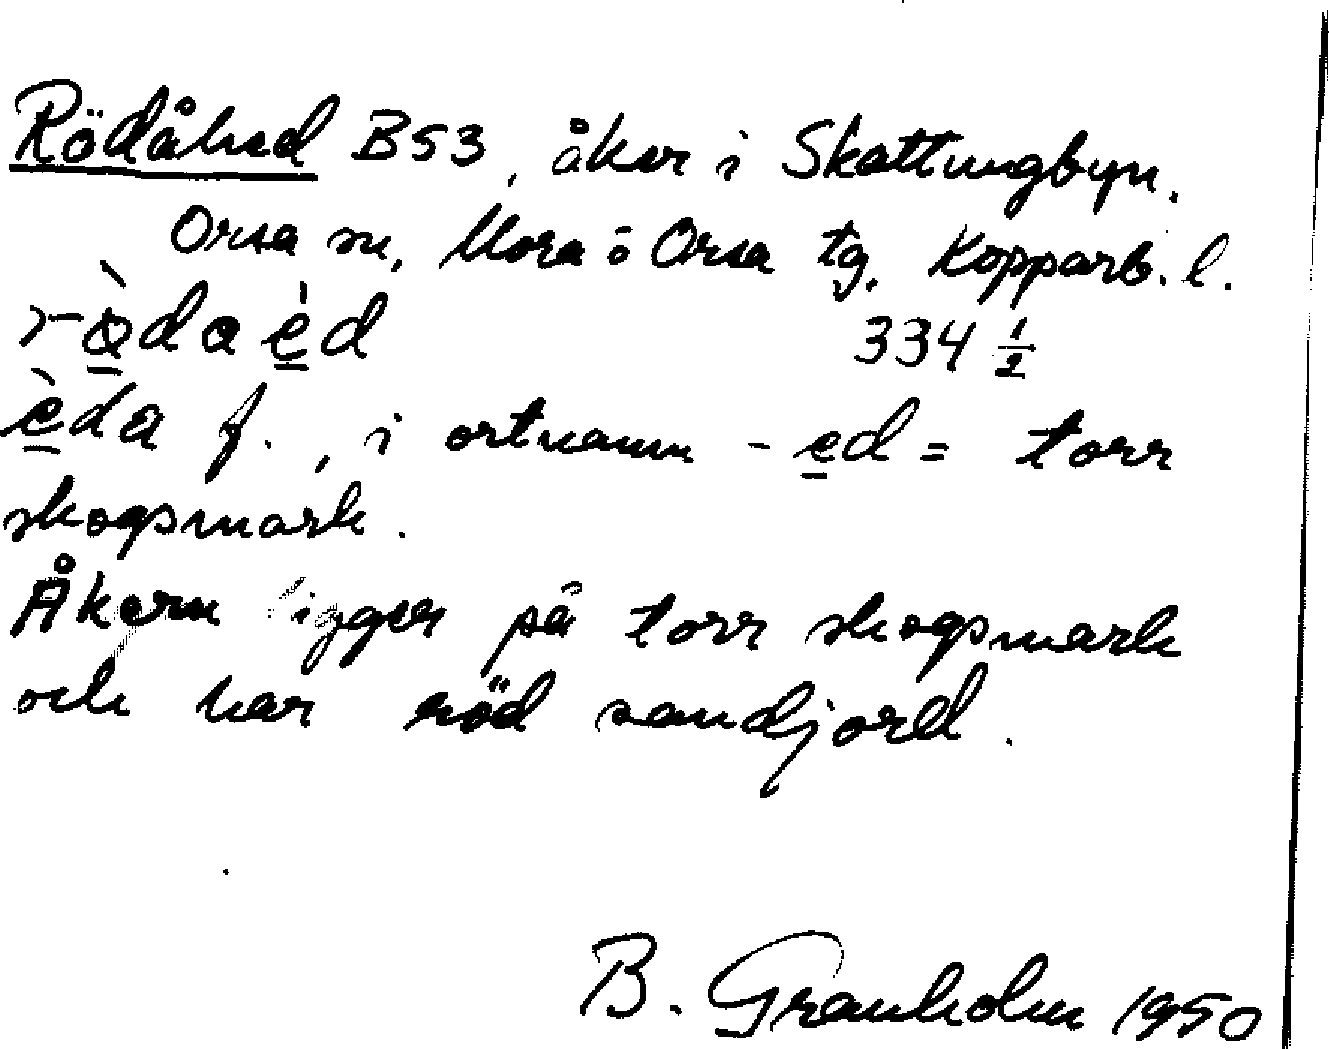 Rödåhed B53, åker i Skattungbyn.
Orsa sn, Mora o Orsa tg. Kopparb. l.
334 1/2
èda f., i ortnamn - ed = torr
skogsmark.
Åkern ligger på torr skogsmark
och har röd sandjord.
B. Granholm 1950